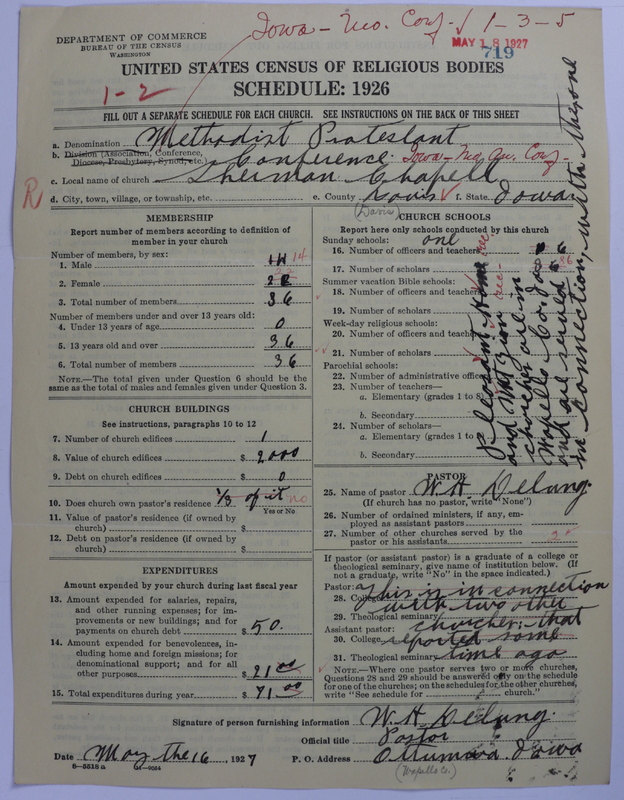 Iowa-Mo. Conf. 1-3-5
DEPARTMENT OF COMMERCE
BUREAU OF THE CENSUS
WASHINGTON
MAY 18 1927
719
UNITED STATES CENSUS OF RELIGIOUS BODIES
1-2
SCHEDULE: 1926
FILL OUT A SEPARATE SCHEDULE FOR EACH CHURCH. SEE INSTRUCTIONS ON THE BACK OF THIS SHEET
a. Denomination Methodist Protestant
b. Division (Association, Conference, Diocese, Presbytery, Synod, etc.) Conference Iowa-Mo. Conf.
c. Local name of church Sherman Chapell
R
d. City, town, village, or township, etc. e. County Davis f. State Iowa
(Davis)
MEMBERSHIP
Report number of members according to definition of member in your church
Number of members, by sex:
1. Male 14 14
2. Female 22 22
3. Total number of members 36
Number of members under and over 13 years old:
4. Under 13 years of age 0
5. 13 years old and over 36
6. Total number of members 36
NOTE.—The total given under Question 6 should be the same as the total of males and females given under Question 3.
CHURCH BUILDINGS
See instructions, paragraphs 10 to 12
7. Number of church edifices 1
8. Value of church edifices $ 2000
9. Debt on church edifices $ 0
10. Does church own pastor's residence 1/3 of it no
Yes or No
11. Value of pastor's residence (if owned by church) $
12. Debt on pastor's residence (if owned by church) $
EXPENDITURES
Amount expended by your church during last fiscal year
13. Amount expended for salaries, repairs, and other running expenses; for improvements or new buildings; and for payments on church debt $ 50.
14. Amount expended for benevolences, including home and foreign missions; for denominational support; and for all other purposes $ 21 00
15. Total expenditures during year $ 71 00
CHURCH SCHOOLS
Report here only schools conducted by this church
Sunday schools: one
16. Number of officers and teachers 6
17. Number of scholars 36
Summer vacation Bible schools:
18. Number of officers and teachers
19. Number of scholars
Week-day religious schools:
20. Number of officers and teachers
21. Number of scholars
Parochial schools:
22. Number of administrative officers
23. Number of teachers—
a. Elementary (grades 1 to 8)
b. Secondary
24. Number of scholars—
a. Elementary (grades 1 to 8)
b. Secondary
Pleasant Home
and Mt Zion
churches are in
Wapello Co. Ia
and
in connection with this one
PASTOR
25. Name of pastor W. H. Delung.
(If church has no pastor, write "None")
26. Number of ordained ministers, if any, employed as assistant pastors
27. Number of other churches served by the pastor or his assistants 2
If pastor (or assistant pastor) is a graduate of a college or theological seminary, give name of institution below. (If not a graduate, write "No" in the space indicated.)
Pastor:
28. College
29. Theological seminary
Assistant pastor:
30. College
31. Theological seminary
This is in connection
with two other
churches that
reported some
time ago
NOTE.—Where one pastor serves two or more churches, Questions 28 and 29 should be answered only on the schedule for one of the churches; on the schedules for the other churches, write "See schedule for church."
Signature of person furnishing information W. H. Delung.
Official title Pastor
Date May the 16, 1927 P. O. Address Ottumwa Iowa
(Wapello Co.)